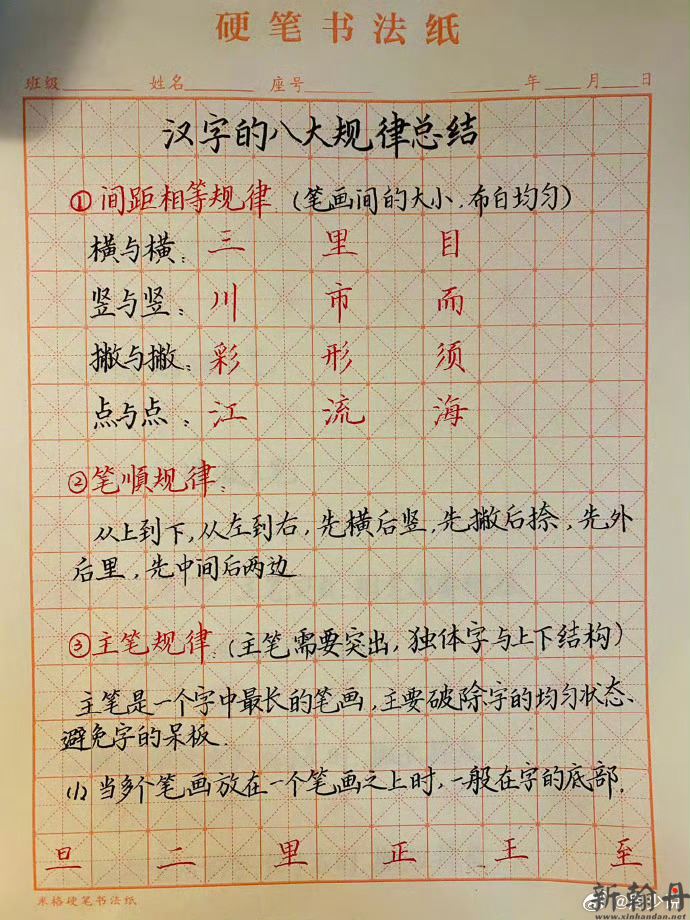 硬笔书法纸
班级 姓名 座号 年 月 日
汉字的八大规律总结
①间距相等规律.(笔画间的大小.布白均匀)
横与横: 三 里 目
竖与竖: 川 市 而
撇与撇: 彩 形 须
点与点: 江 流 海
②笔順规律:
从上到下,从左到右,先横后竖,先撇后捺,先外
后里,先中间后两边
③主笔规律.(主笔需要突出,独体字与上下结构)
主笔是一个字中最长的笔画,主要破除字的均匀状态、
避免字的呆板.
(1)当多个笔画放在一个笔画之上时,一般在字的底部.
旦 二 里 正 王 至
米格硬笔书法纸
新翰丹
www.xinhandan.net